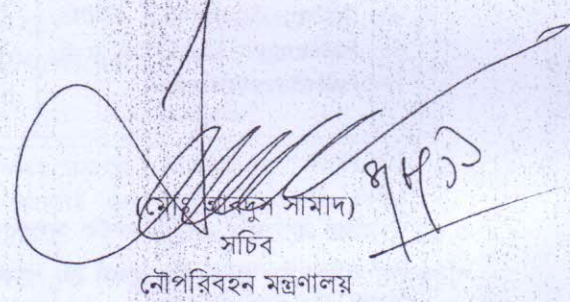 (মোঃ আবদুস সামাদ)
সচিব
নৌপরিবহন মন্ত্রণালয়